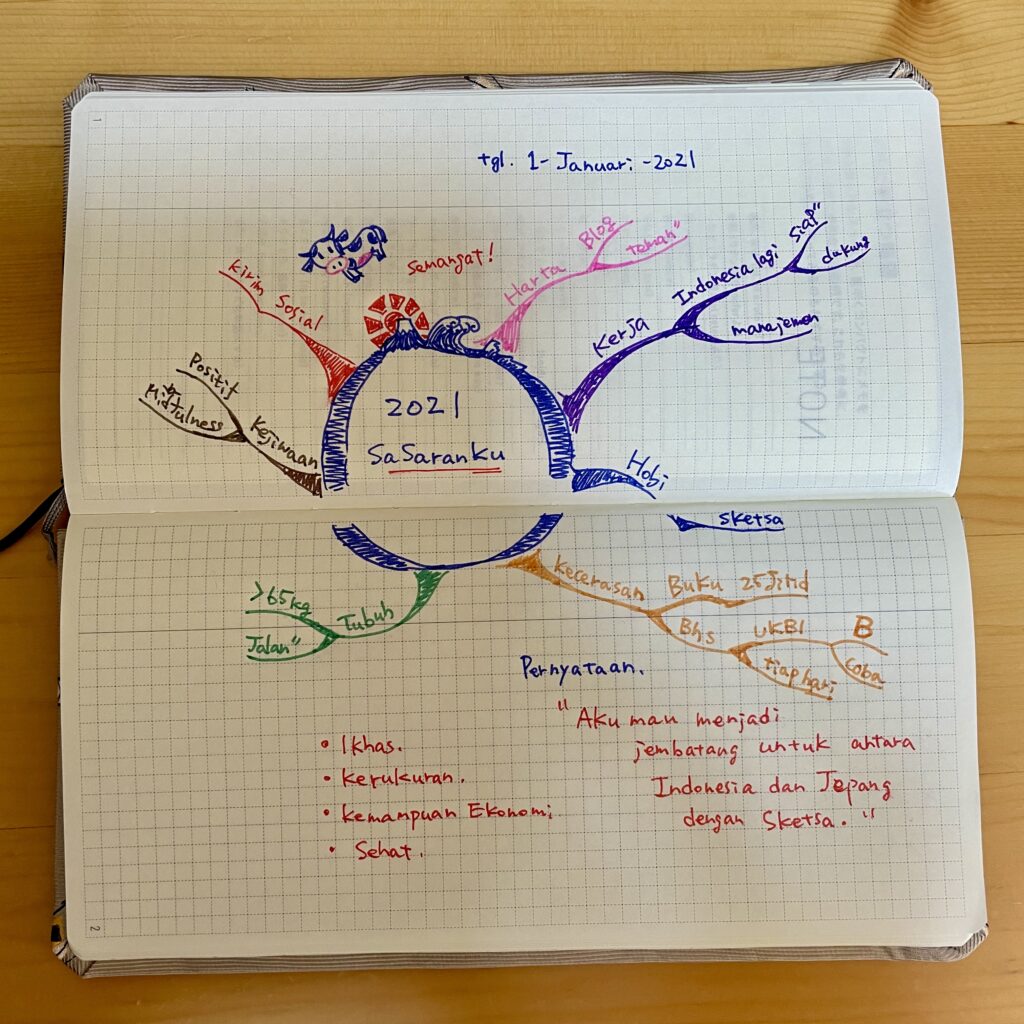 1
tgl. 1-Januari-2021
Semangat!
Kirim
Sosial
Harta
Blog
teman"
Kerja
Indonesia lagi
siap"
dukung
manajemen
Positif
Kejiwaan
2021
SaSaranKu
Hobi
sketsa
>65kg
Jalan"
Tubuh
kecerasan
Buku 25Jilid
Bhs
UKBI
B
coba
tiap hari
Pernyataan.
"Aku mau menjadi
jembatang untuk antara
Indonesia dan Jepang
dengan Sketsa."
• Ikhas.
• Kerukuran.
• kemampuan Ekonomi
• Sehat.
2